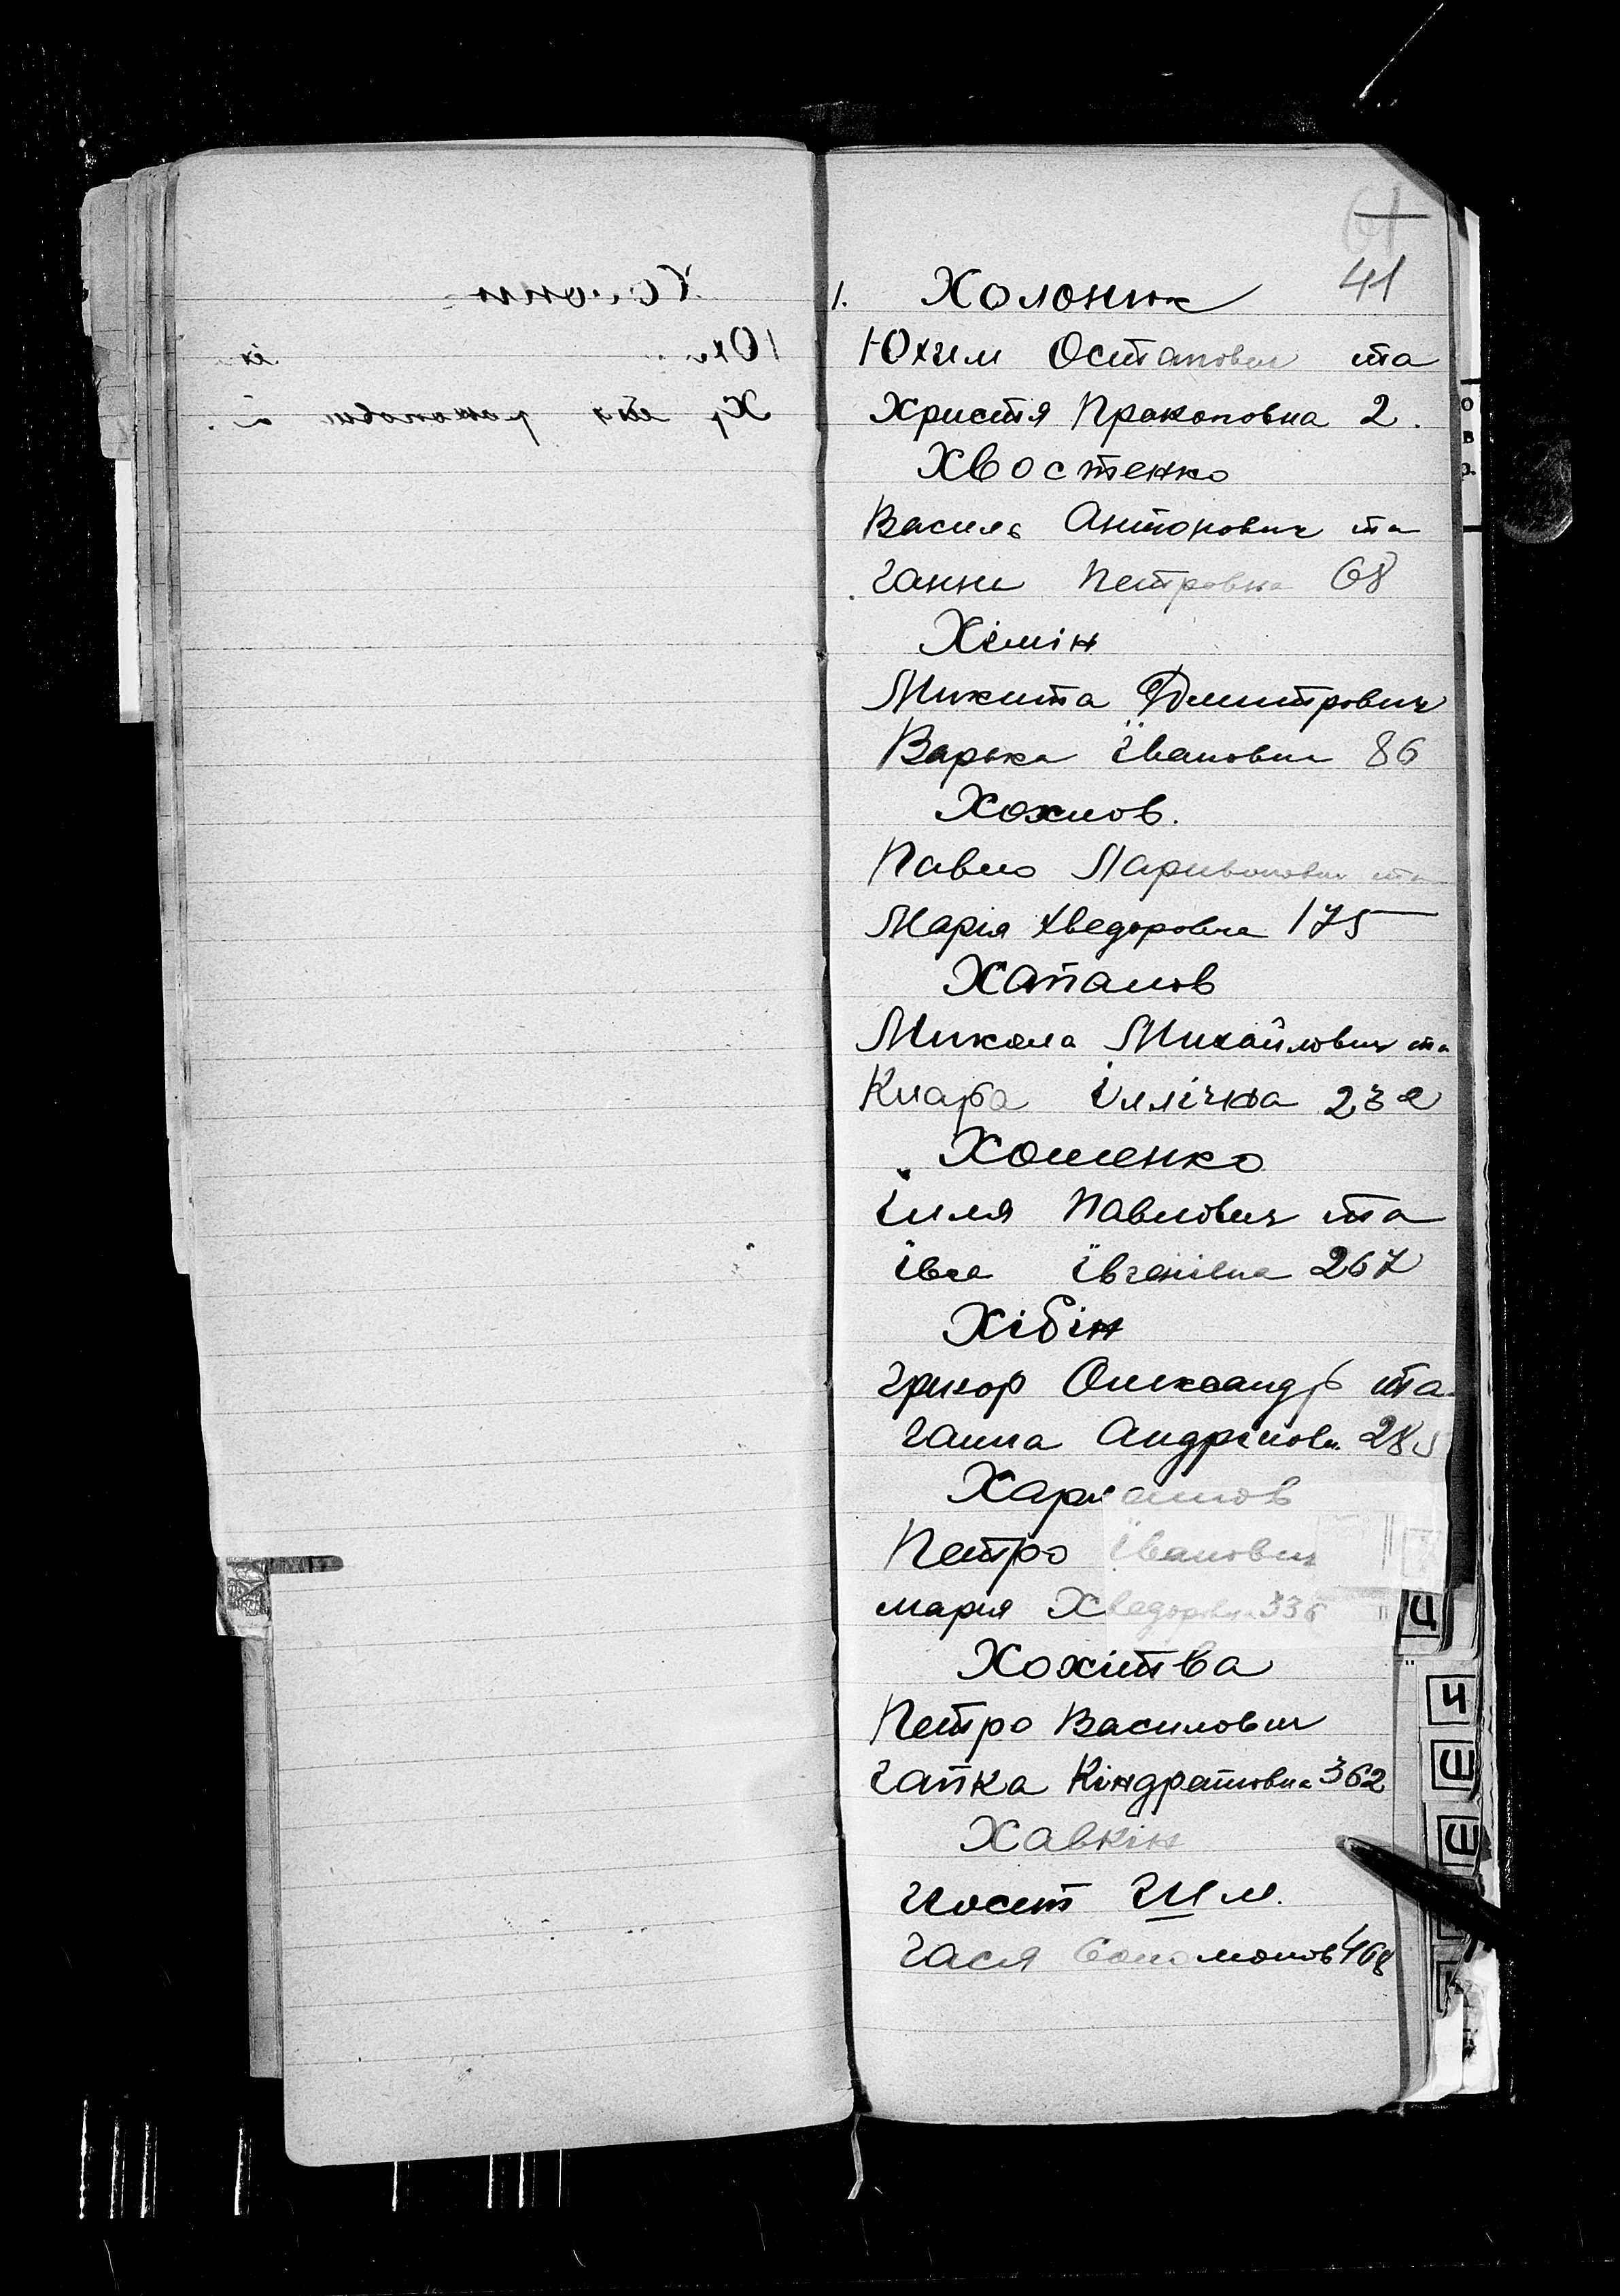 61
41
1. Холонюк
Юхим Остапович та
Христя Прокоповна 2.
Хвостенко
Василь Антонович та
Ганна Петровна 68
Хімін
Микита Дмитрович
Варька Івановна 86
Хохлов.
Павло Ларивонович та
Марія Хведоровна 175
Хапалов
Микола Михайлович та
Клара Іллічна
Хоменко
Ілля Павлович та
Івга Івгенівна 267
Хібін
Григор Олександр та
Ганна Андріяовн.
Петро Іванович
Марія Хведоровна 336
Хохітва
Петро Василович
Гапка Кіндратовна 362
Хавкін
Иосип
Гася Соломонов 468
Ч
Ш